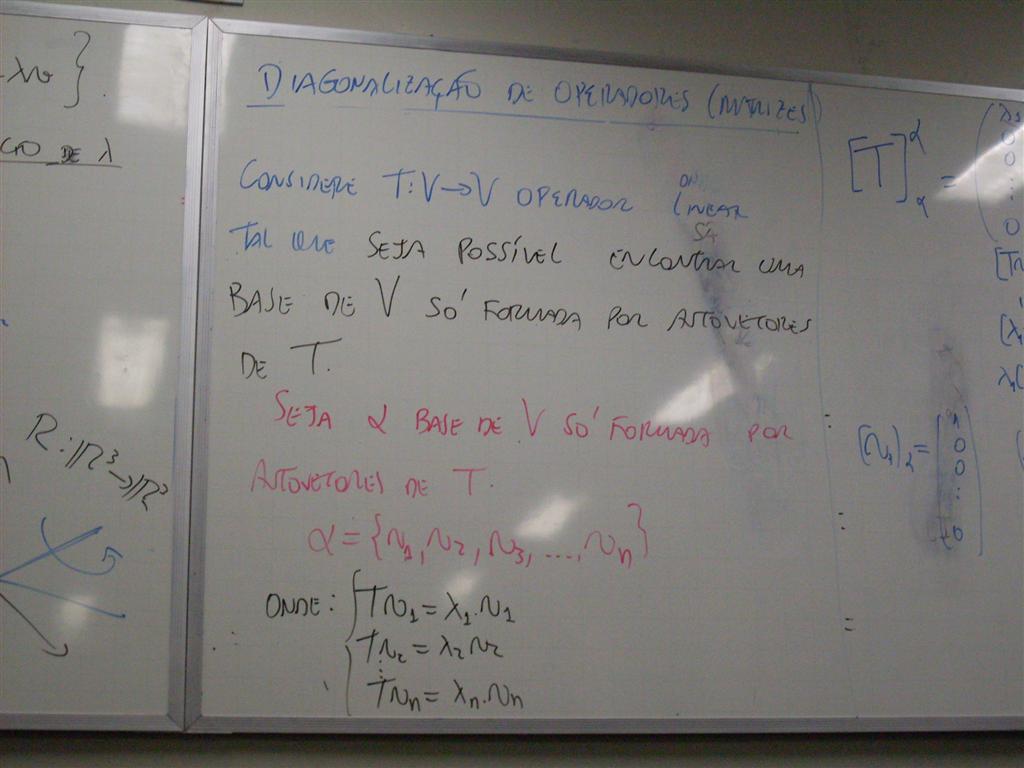 -λv }.
ÇÃO DE λ
R: ℝ³→ℝ³
DIAGONALIZAÇÃO DE OPERADORES (MATRIZES)
CONSIDERE T:V→V OPERADOR LINEAR
TAL QUE SEJA POSSÍVEL ENCONTRAR UMA
BASE DE V SÓ FORMADA POR AUTOVETORES
DE T.
SEJA α BASE DE V SÓ FORMADA POR
AUTOVETORES DE T.
α = {v₁, v₂, v₃, ..., vₙ}
ONDE: { Tv₁ = λ₁.v₁
Tv₂ = λ₂v₂
⋮
Tvₙ = λₙ.vₙ
[T]^α_α =
0
0
⋮
0
[v₁]_α = [1
0
0
⋮
0]